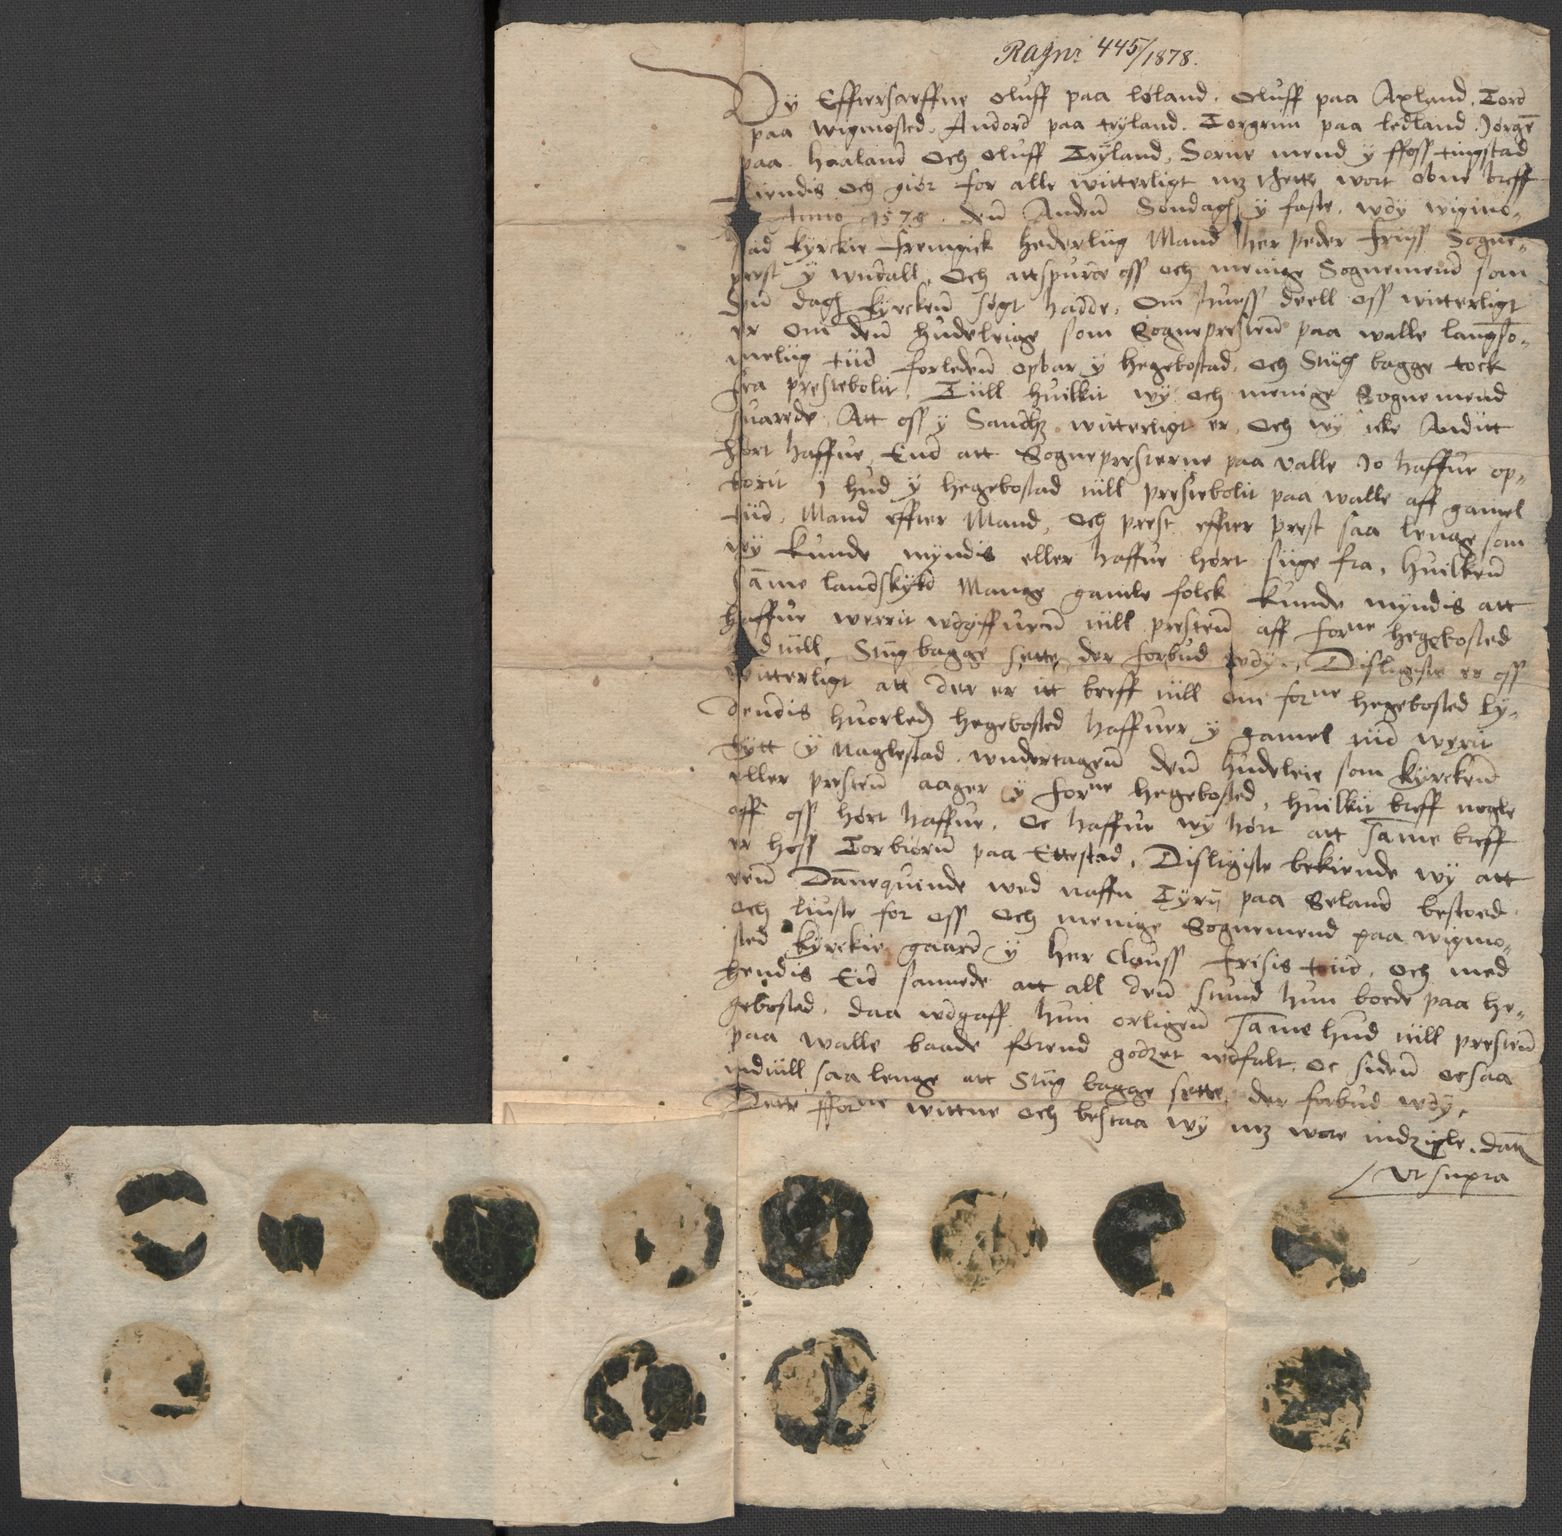 Ragni 445/1878.
Wÿ Effterscreffne Oluff paa løland. Oluff paa Axland. Tord
paa wigmosted. Andord paa trÿland. Torgrim paa ledland. Jørgen
paa haaland Och Oluff Trÿland, Sorne mend ÿ ffoss tingstad
kiendis Och giør for alle witterligt mz thette wort obne breff
Anno 157 . den Anden Søndagh ÿ faste. wdÿ wigmo-
stad kÿrckie fremgick hederlüg Mand Her peder friiss Sogne-
prest ÿ wndall, Och attspurde oss och menige Sognemend som
den dagh kÿrcken søgt hadde, Om huess deell oss witterligt
er Om den hudeleige som Sognepresten paa walle langso-
melüg tiid forleden opbar ÿ hegebostad, och Stiig bagge tock
fra prestebolit. Tiill huilkit wÿ och menige Sognemend
suarede, Att oss ÿ Sandhz witterligt er, Och wÿ icke Anditt
hørt haffue, End att Sognepresterne paa valle Jo haffue op-
borit J hud ÿ hegebostad tiill prestebolit paa walle aff gamel
tiid, Mand effter Mand, Och prest effter prest saa lenge som
wÿ kunde mÿndis eller haffue hørt siige fra, huilken
same landskÿld Mange gamle folck kunde mÿndis att
haffue werrit wdgiffuen tiill presten aff forne hegebosted
indtiill, Stiig bagge sette der forbud wdÿ. Disligiste er oss
witterligt att der er itt breff tiill om forne hegebosted lÿ-
dendis huorled hegebosted haffuer ÿ gamel tiid werit
bÿtt ÿ Naglestad. wndertagen den hudeleie som kÿrcken
eller presten aager ÿ forne hegebosted, huilkit breff nogle
aff oss hørt haffue. Oc haffue wÿ hørt att same breff
er hoss Torbiørn paa Ettestad. Disligiste bekiende wÿ att
een Danequinde wed naffn Tÿrÿ paa Seland bestoed
och liuste for oss Och menige Sognemend paa wigmo-
sted kÿrckie gaard ÿ Her Clauss frisis tiid, och med
hendis Eid sannede att all den stund hun boede paa he-
gebosted. daa wdgaff hun orligen same hud tiill presten
paa walle baade førend godzet wdfalt. oc siden ocsaa
indtiill saa lenge att Stiig bagge sette der forbud wdÿ.
Dette fforne wittne Och bestaa wÿ mz wore indzigle. Datum
Vt supra